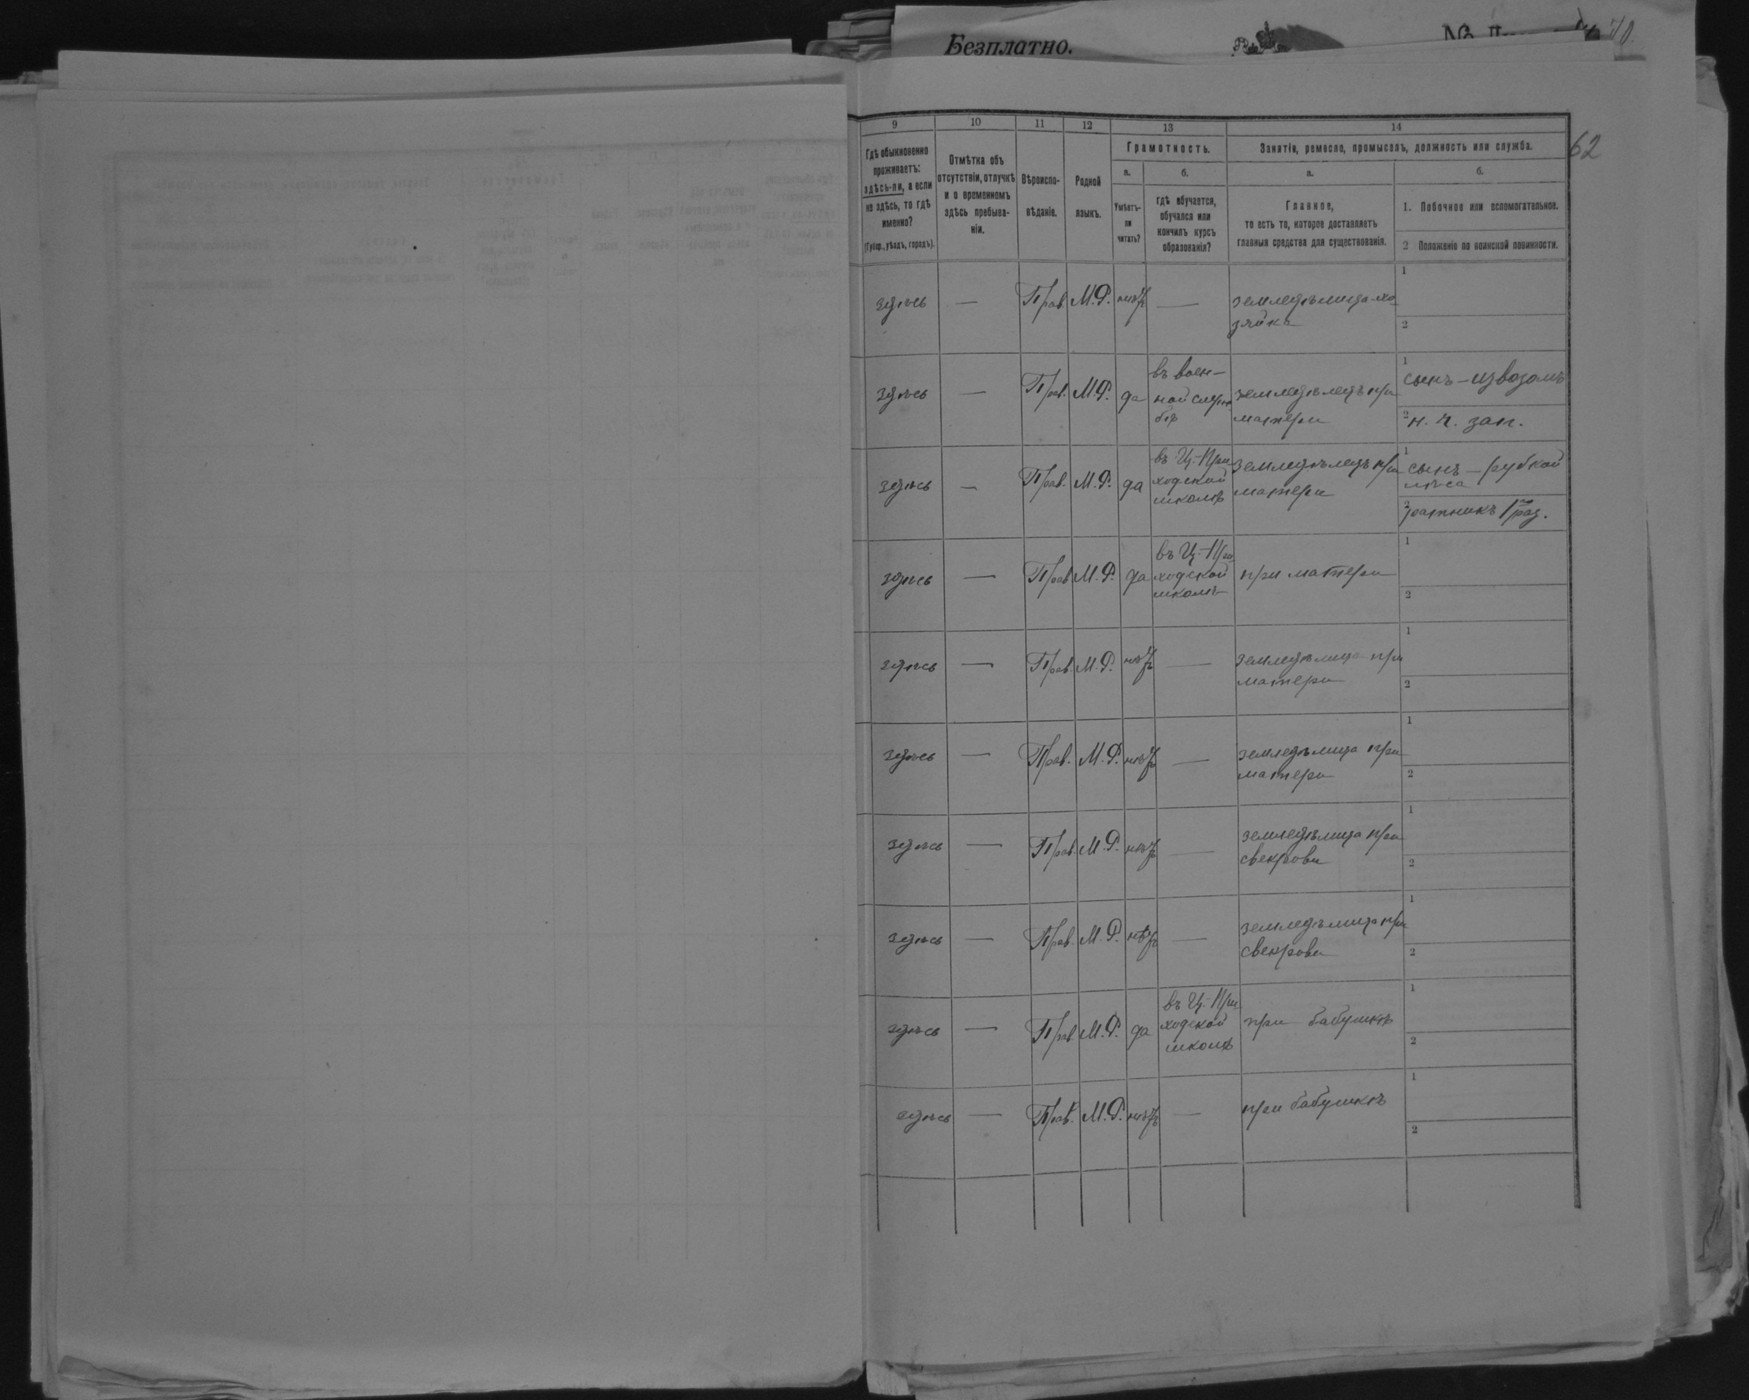 Безплатно.
62
9 10 11 12 13 14
Гдѣ обыкновенно
проживаетъ:
здѣсь-ли, а если
не здѣсь, то гдѣ
именно?
(Губер., уѣздъ, городъ).
Отмѣтка объ
отсутствіи, отлучкѣ
и о временномъ
здѣсь пребыва-
ніи.
Вѣроиспо-
вѣданіе.
Родной
языкъ.
Грамотность.
а.
Умѣетъ-
ли
читать?
б.
гдѣ обучается,
обучался или
кончилъ курсъ
образованія?
Занятіе, ремесло, промыселъ, должность или служба.
а.
Главное,
то есть то, которое доставляетъ
главныя средства для существованія.
б.
1. Побочное или вспомогательное.
2 Положеніе по воинской повинности.
здѣсь — Прав. М.Р. нѣтъ —
земледѣлица хо
зяйка
1
2
здѣсь — Прав. М.Р. да
въ воен-
ной служ
бѣ
земледѣлецъ при
матери
1 сынъ - извозомъ
2 н. ч. зап.
здѣсь — Прав. М.Р. да
въ Ц.-При
ходской
школѣ
земледѣлецъ при
матери
1 сынъ - рубкой
лѣса
2 ратникъ 1го раз.
здѣсь — Прав М.Р. да
въ Ц.-При
ходской
школѣ
при матери
1
2
здѣсь — Прав М.Р. нѣтъ —
земледѣлица при
матери
1
2
здѣсь — Прав. М.Р. нѣтъ —
земледѣлица при
матери
1
2
здѣсь — Прав. М.Р. нѣтъ —
земледѣлица при
свекрови
1
2
здѣсь — Прав. М.Р. нѣтъ —
земледѣлица при
свекрови
1
2
здѣсь — Прав М.Р. да
въ Ц.-При
ходской
школѣ
при бабушкѣ
1
2
здѣсь — Прав. М.Р. нѣтъ —
при бабушкѣ
1
2